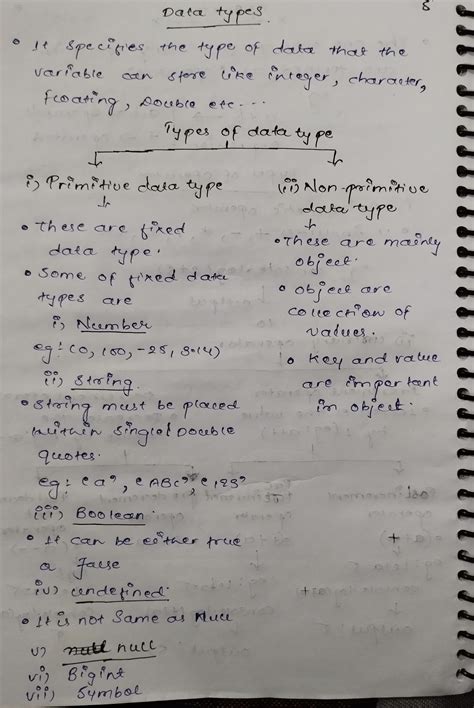 8
Data types.
• It specifies the type of data that the
variable can store like integer, character,
floating, Double etc....
Types of data type
i) Primitive data type
• These are fixed
data type.
• Some of fixed data
types are
i) Number
eg: (0, 100, -25, 3.14)
ii) String.
• String must be placed
within single/Double
quotes.
eg: 'a', 'ABC', '123'
iii) Boolean.
• It can be either true
or False
iv) undefined.
• It is not Same as Null
v) null null
vi) Bigint
vii) Symbol
(ii) Non-primitive
data type
• These are mainly
object.
• object are
collection of
values.
• Key and value
are important
in object.